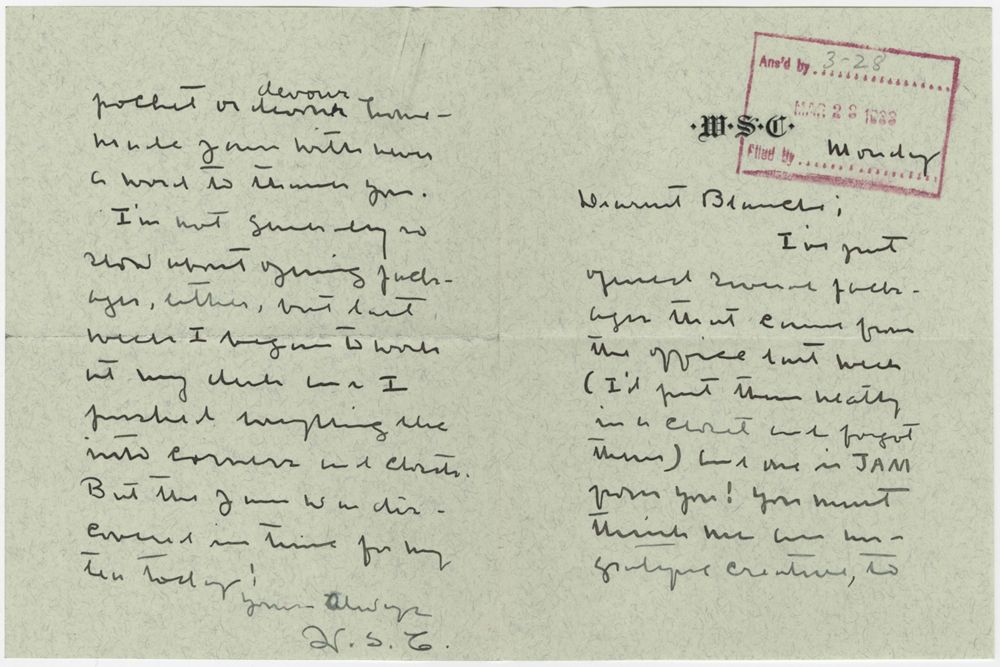 ·W·S·C·
Ans'd by 3-28
MAR 28 1938
Filed by
Monday
Dearest Blanche;
I've just
opened several pack-
ages that came from
the office last week
(I'd put them neatly
in a closet and forgot
them) and one is JAM
from you! You must
think me an un-
grateful creature, to
pocket or devour home-
made jam with never
a word to thank you.
I'm not generally so
slow about opening pack-
ages, either, but last
week I began to work
at my desk and I
pushed everything else
into corners and closets.
But the jam was dis-
covered in time for my
tea today!
Yours Always
W. S. C.